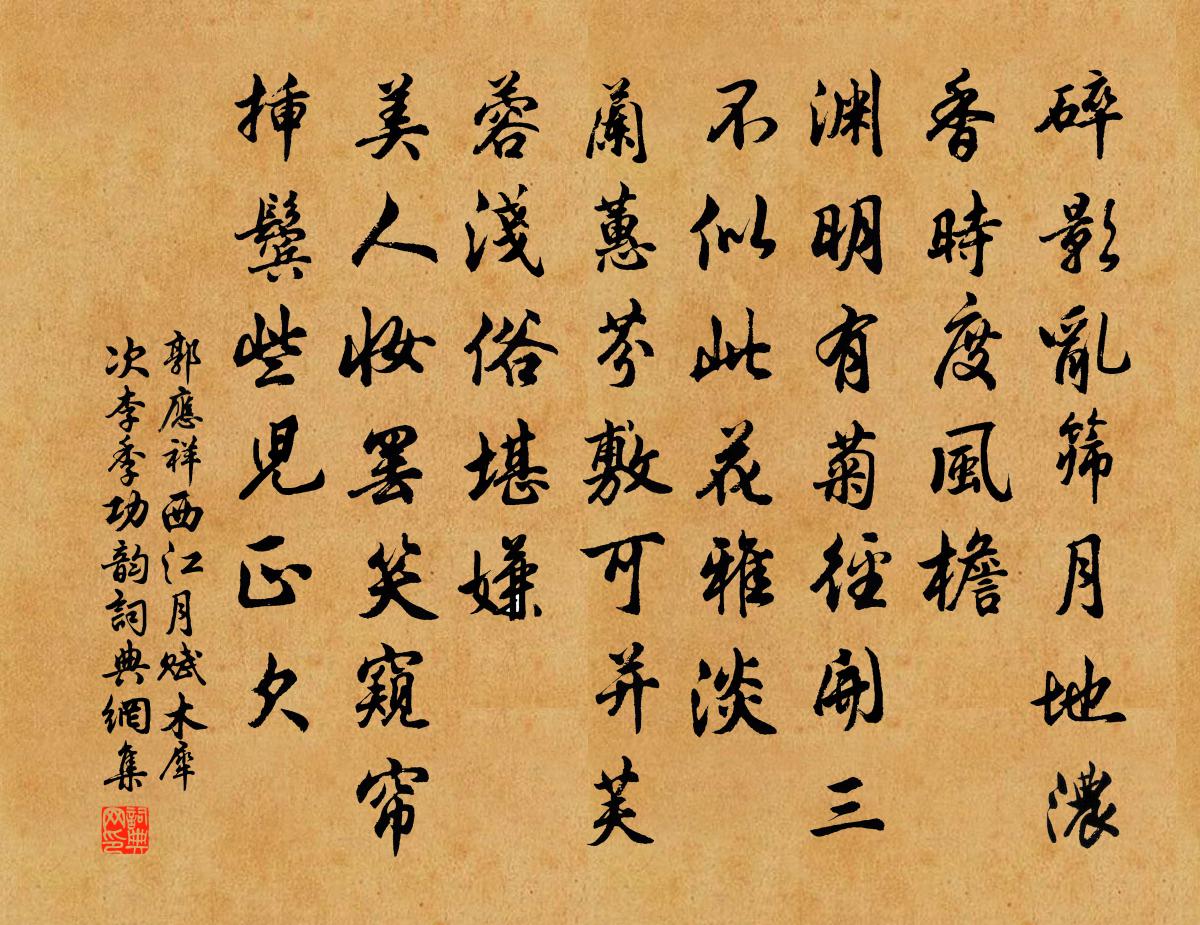 碎影亂篩月地濃
香時度風檐
淵明有菊徑開三
不似此花雅淡
蘭蕙芬敷可并芙
蓉淺俗堪嫌
美人妝罷笑窺帘
挿鬓些児正欠
郭應祥西江月赋木犀
次李季功韵詞典網集
詞典网印